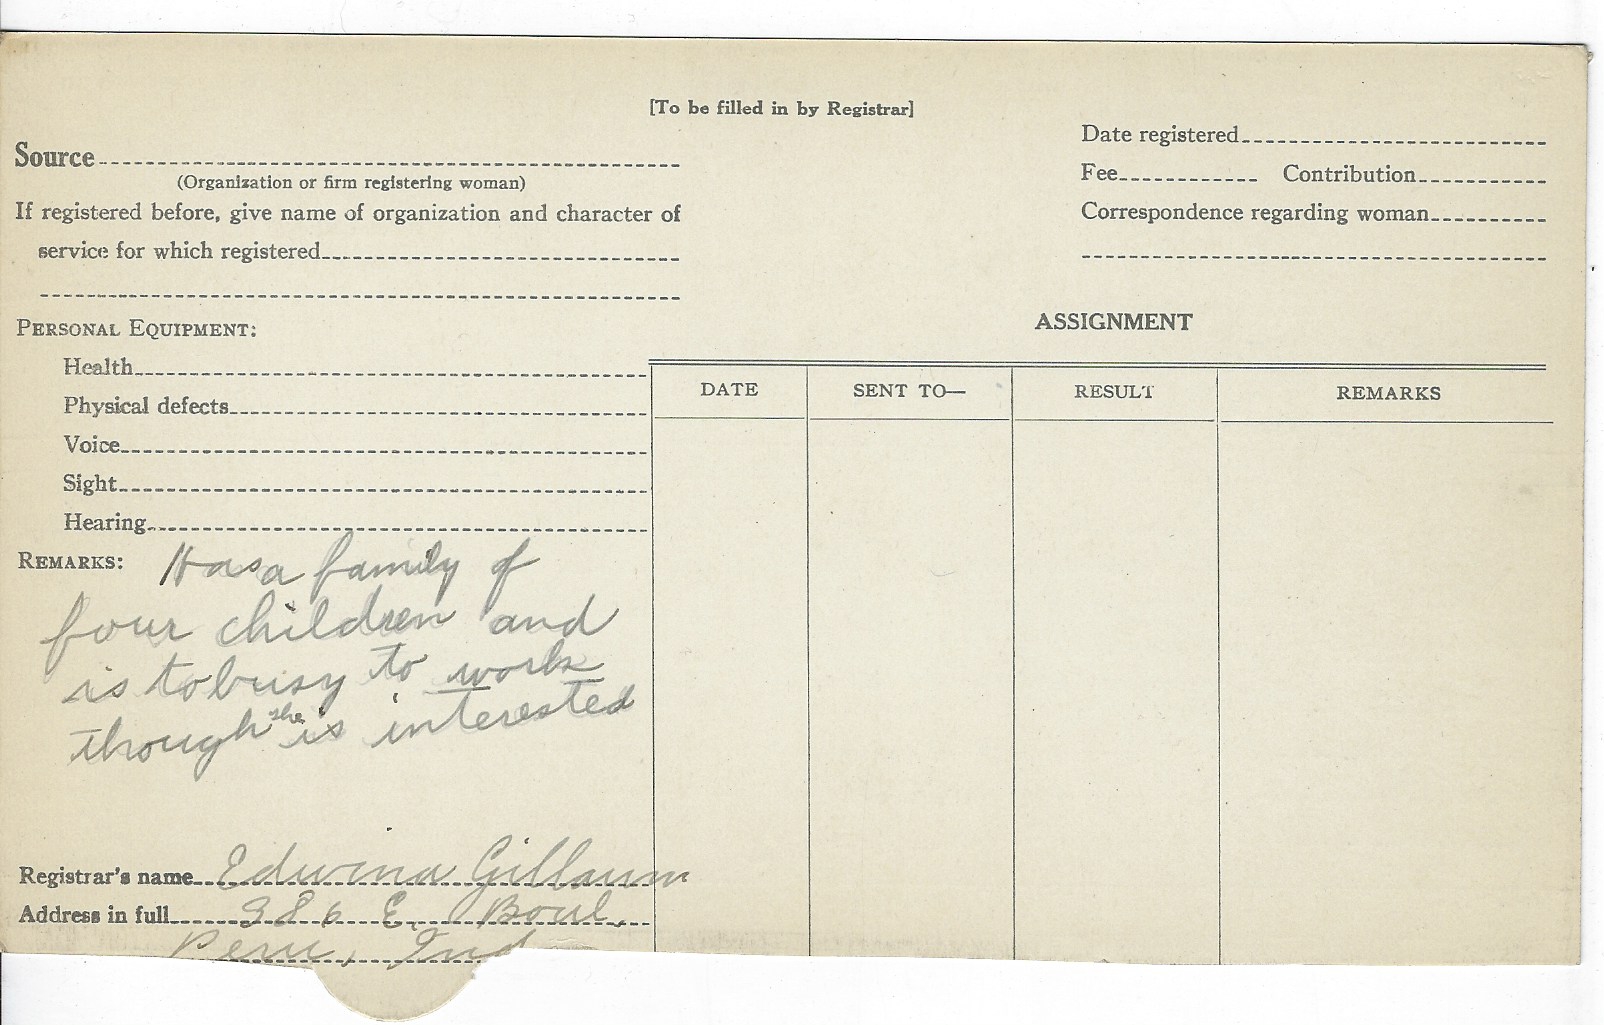 [To be filled in by Registrar]
Source
(Organization or firm registering woman)
If registered before, give name of organization and character of
service for which registered
Date registered
Fee Contribution
Correspondence regarding woman
PERSONAL EQUIPMENT:
Health
Physical defects
Voice
Sight
Hearing
ASSIGNMENT
DATE SENT TO— RESULT REMARKS
REMARKS: Has a family of
four children and
is to busy to work
though she is interested
Registrar's name Edwina Gillaum
Address in full 386 E. Boul.
Peru, Ind